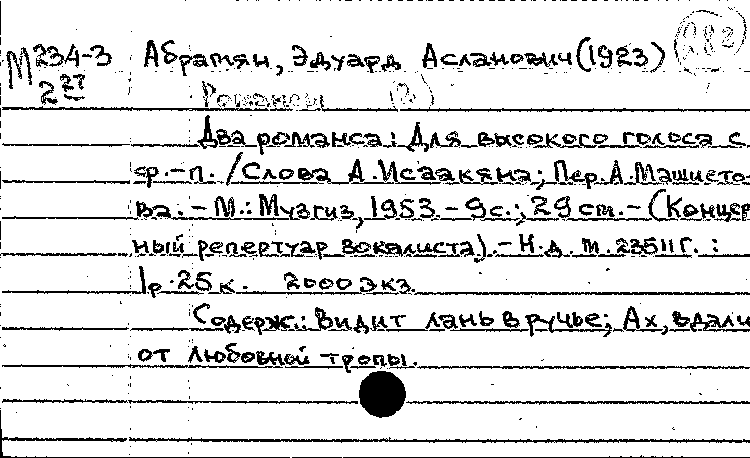 М234-3 Абрамян, Эдуард Асланович (1923) 282
2 27 Романсы (2)
Два романса: Для высокого голоса с
ф.-п. / Слова А. Исаакяна; Пер. А. Машисто-
ва. - М.: Музгиз, 1953. - 9 с.; 29 cm. - (Концерт
ный репертуар вокалиста). - Н.д. М.23511Г. :
1р.25к. 2000 экз.
Содерж.: Видит лань в ручье; Ах, вдали
от любовной тропы.